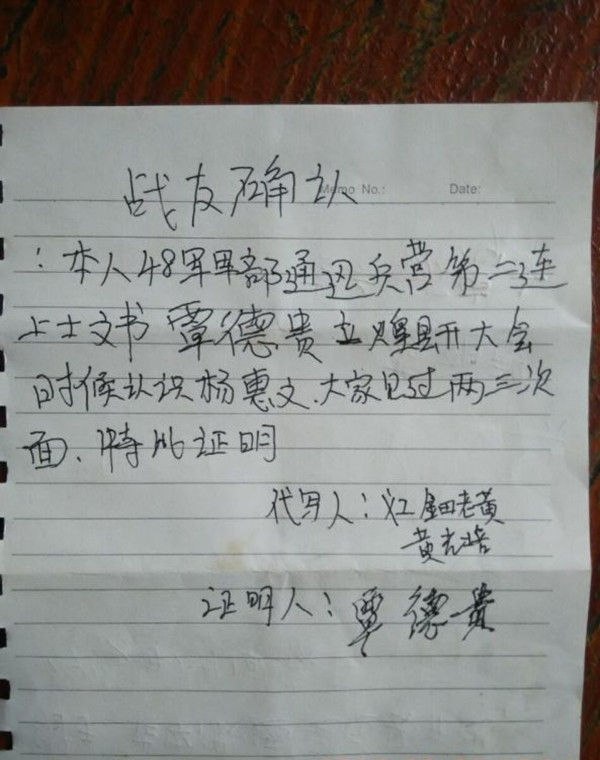 战友确认
Memo No.: Date:
:本人48军军部通迅兵营第二连
上士文书覃德贵立煌县开大会
时候认识杨惠文、大家见过两三次
面、特此证明
代写人:红钿老黄
黄光培
证明人:覃德贵